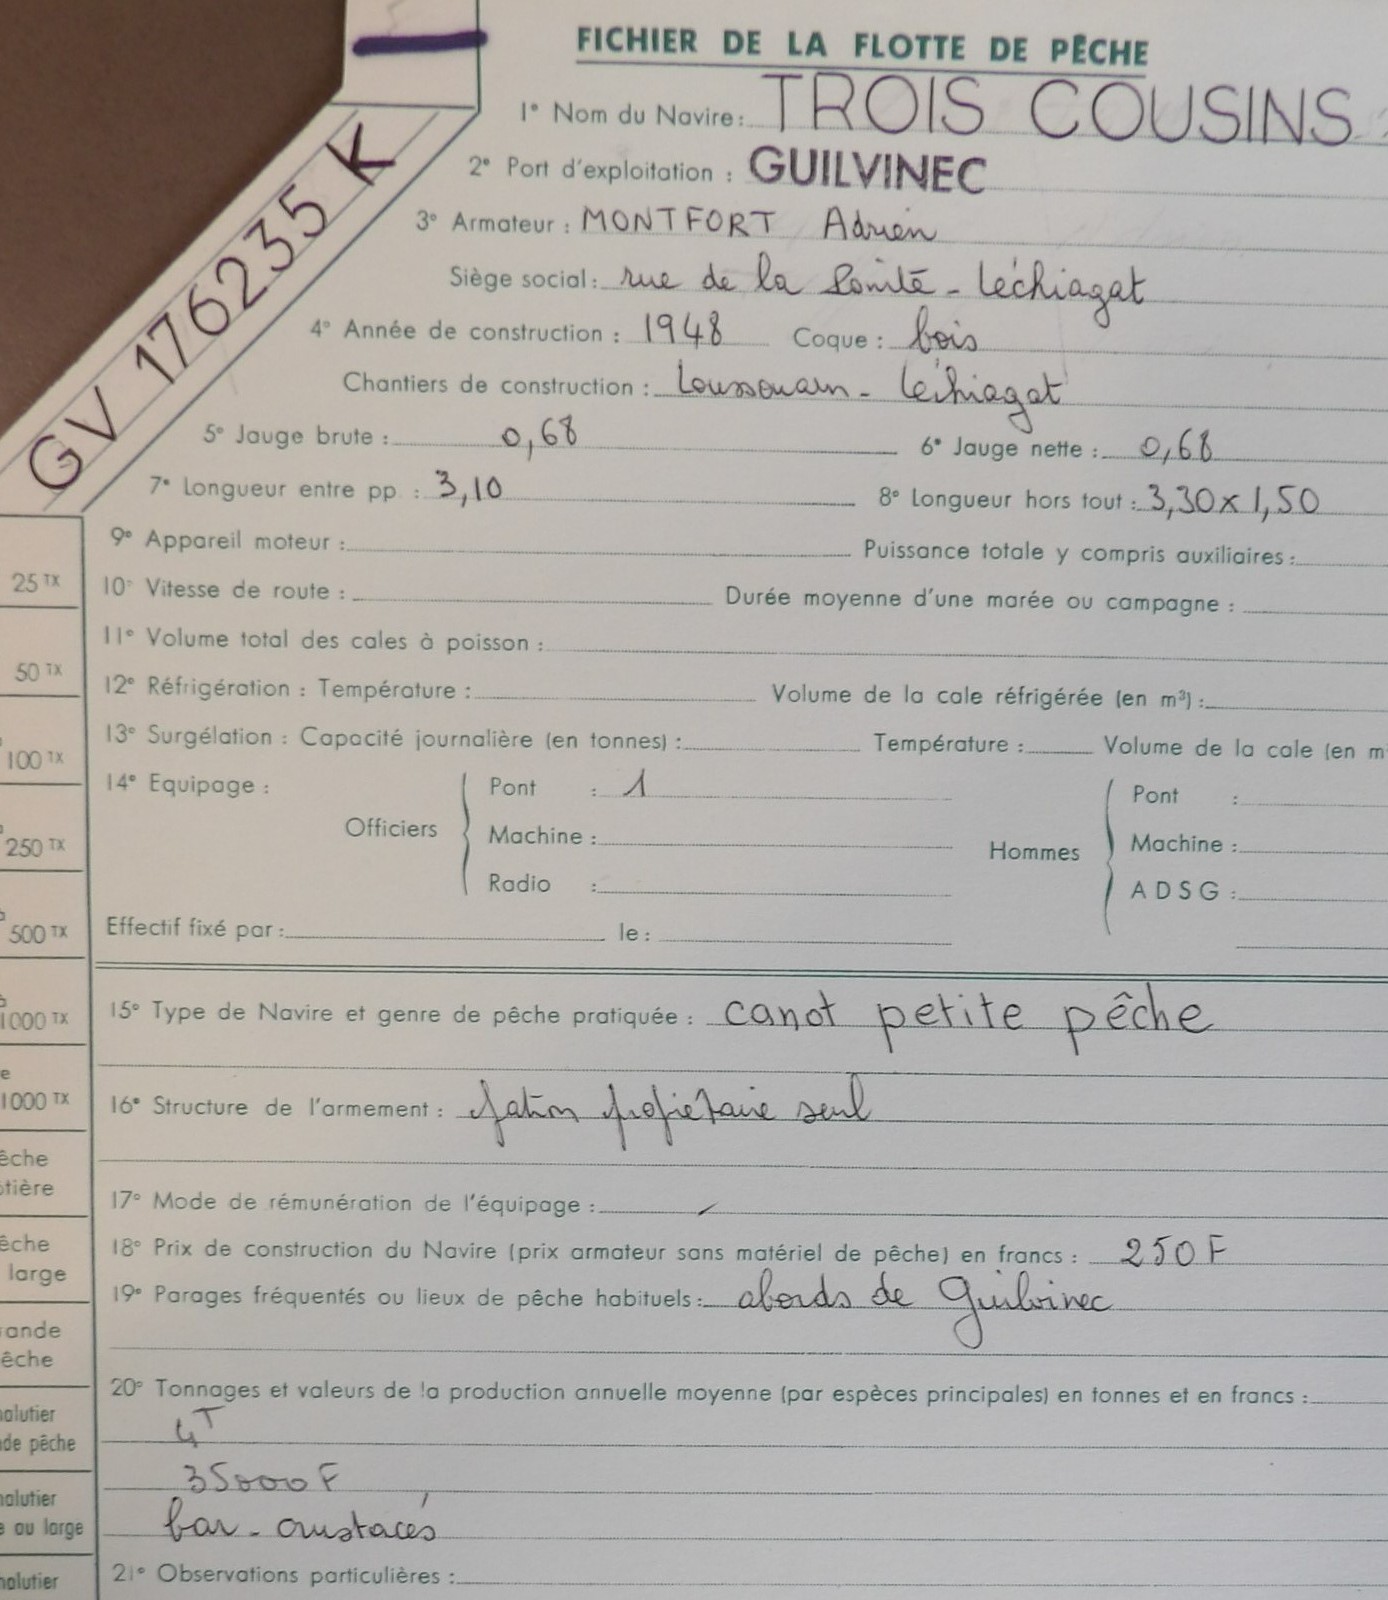 FICHIER DE LA FLOTTE DE PÊCHE
GV 176235 K
1° Nom du Navire : TROIS COUSINS
2° Port d'exploitation : GUILVINEC
3° Armateur : MONTFORT Adrien
Siège social : rue de la Santé - Léchiagat
4° Année de construction : 1948 Coque : bois
Chantiers de construction : Loussouarn - Léchiagat
5° Jauge brute : 0,68 6° Jauge nette : 0,68
7° Longueur entre pp. : 3,10 8° Longueur hors tout : 3,30 x 1,50
9° Appareil moteur : Puissance totale y compris auxiliaires :
10° Vitesse de route : Durée moyenne d'une marée ou campagne :
11° Volume total des cales à poisson :
12° Réfrigération : Température : Volume de la cale réfrigérée (en m³) :
13° Surgélation : Capacité journalière (en tonnes) : Température : Volume de la cale (en m
14° Equipage :
Officiers Pont : 1
Machine :
Radio :
Hommes Pont :
Machine :
ADSG :
Effectif fixé par : le :
15° Type de Navire et genre de pêche pratiquée : canot petite pêche
16° Structure de l'armement : patron propriétaire seul
17° Mode de rémunération de l'équipage :
18° Prix de construction du Navire (prix armateur sans matériel de pêche) en francs : 250 F
19° Parages fréquentés ou lieux de pêche habituels : abords de Guilvinec
20° Tonnages et valeurs de la production annuelle moyenne (par espèces principales) en tonnes et en francs :
4T
35000 F
bar - crustacés
21° Observations particulières :
25 TX
50 TX
100 TX
250 TX
500 TX
1000 TX
1000 TX
êche
ôtière
êche
large
ande
êche
alutier
de pêche
alutier
e ou large
alutier